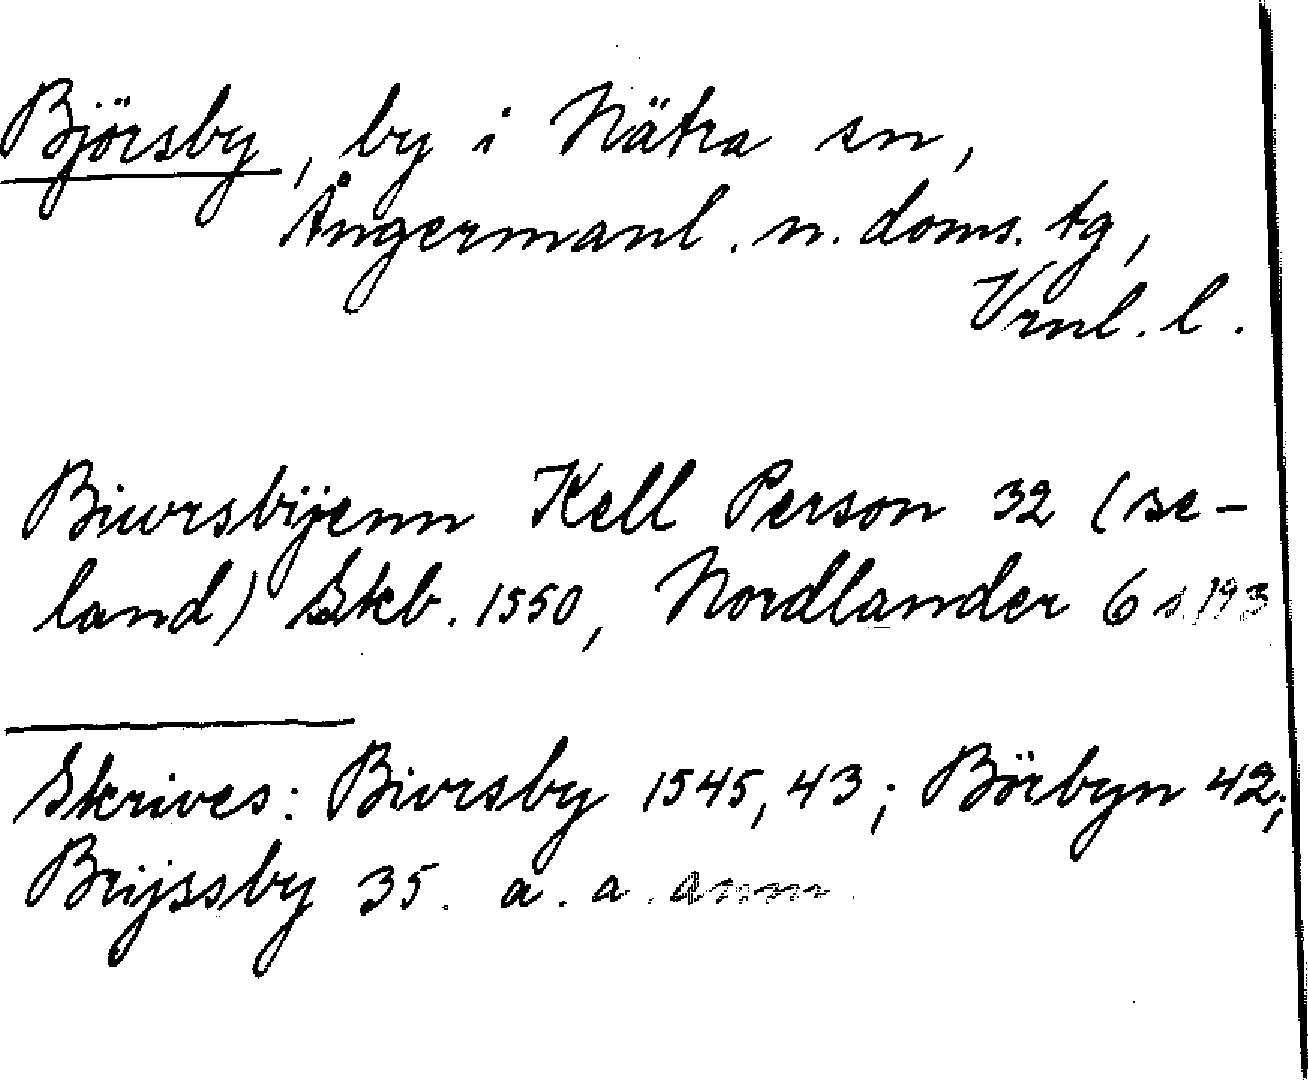 Björsby, by i Nätra sn,
Ångermanl. n. doms. tg,
Vrnl. l.
Biwrsbijenn Kell Person 32 (se-
land) Skb. 1550, Nordlander 6 s. 193
Skrives: Biursby 1545, 43; Börbyn 42;
Brijssby 35. a. a. anm